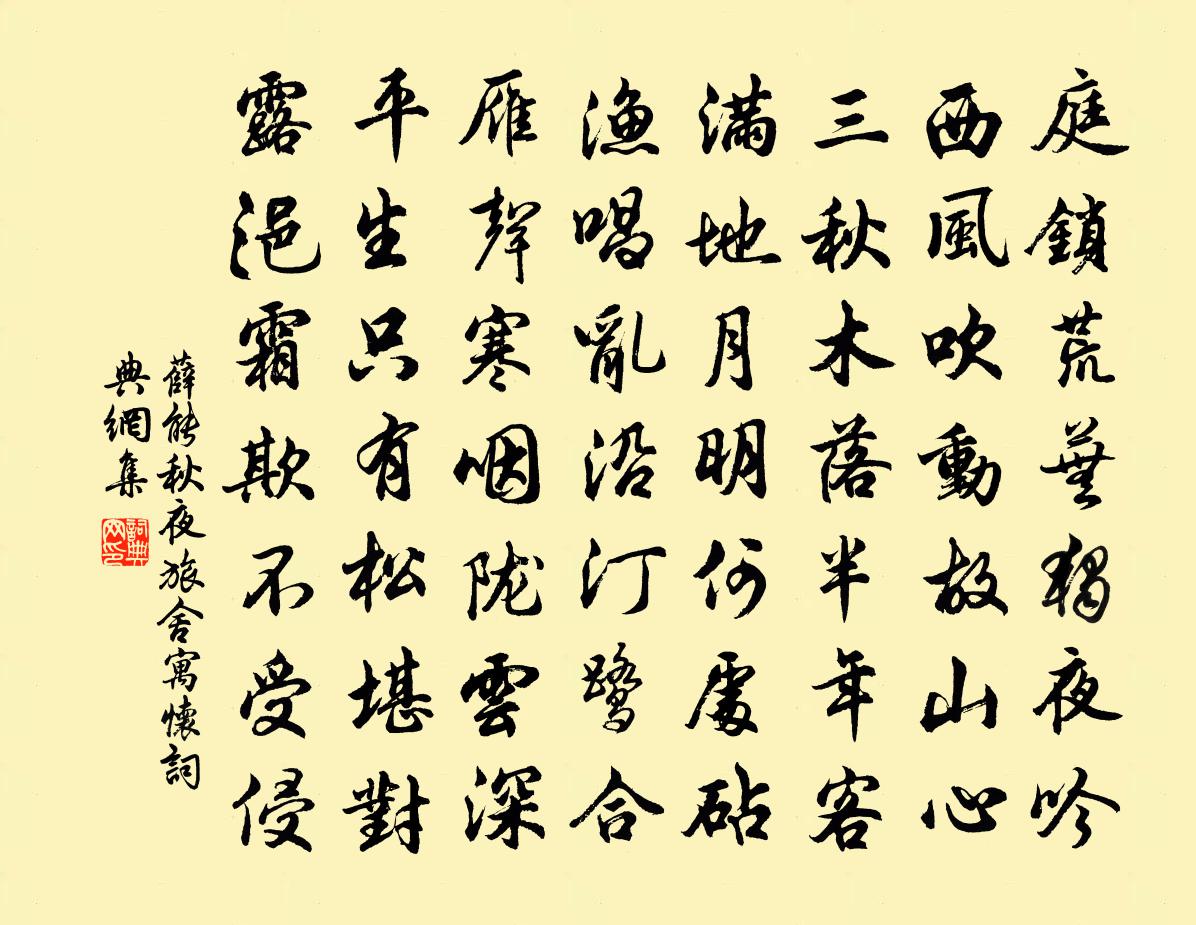 庭鎖荒蕪獨夜吟
西風吹動故山心
三秋木落半年客
滿地月明何處砧
漁唱亂沿汀鷺合
雁聲寒咽隴雲深
平生只有松堪對
露浥霜欺不受侵
薛能秋夜旅舍寓懷詞
典網集
詞典
网印